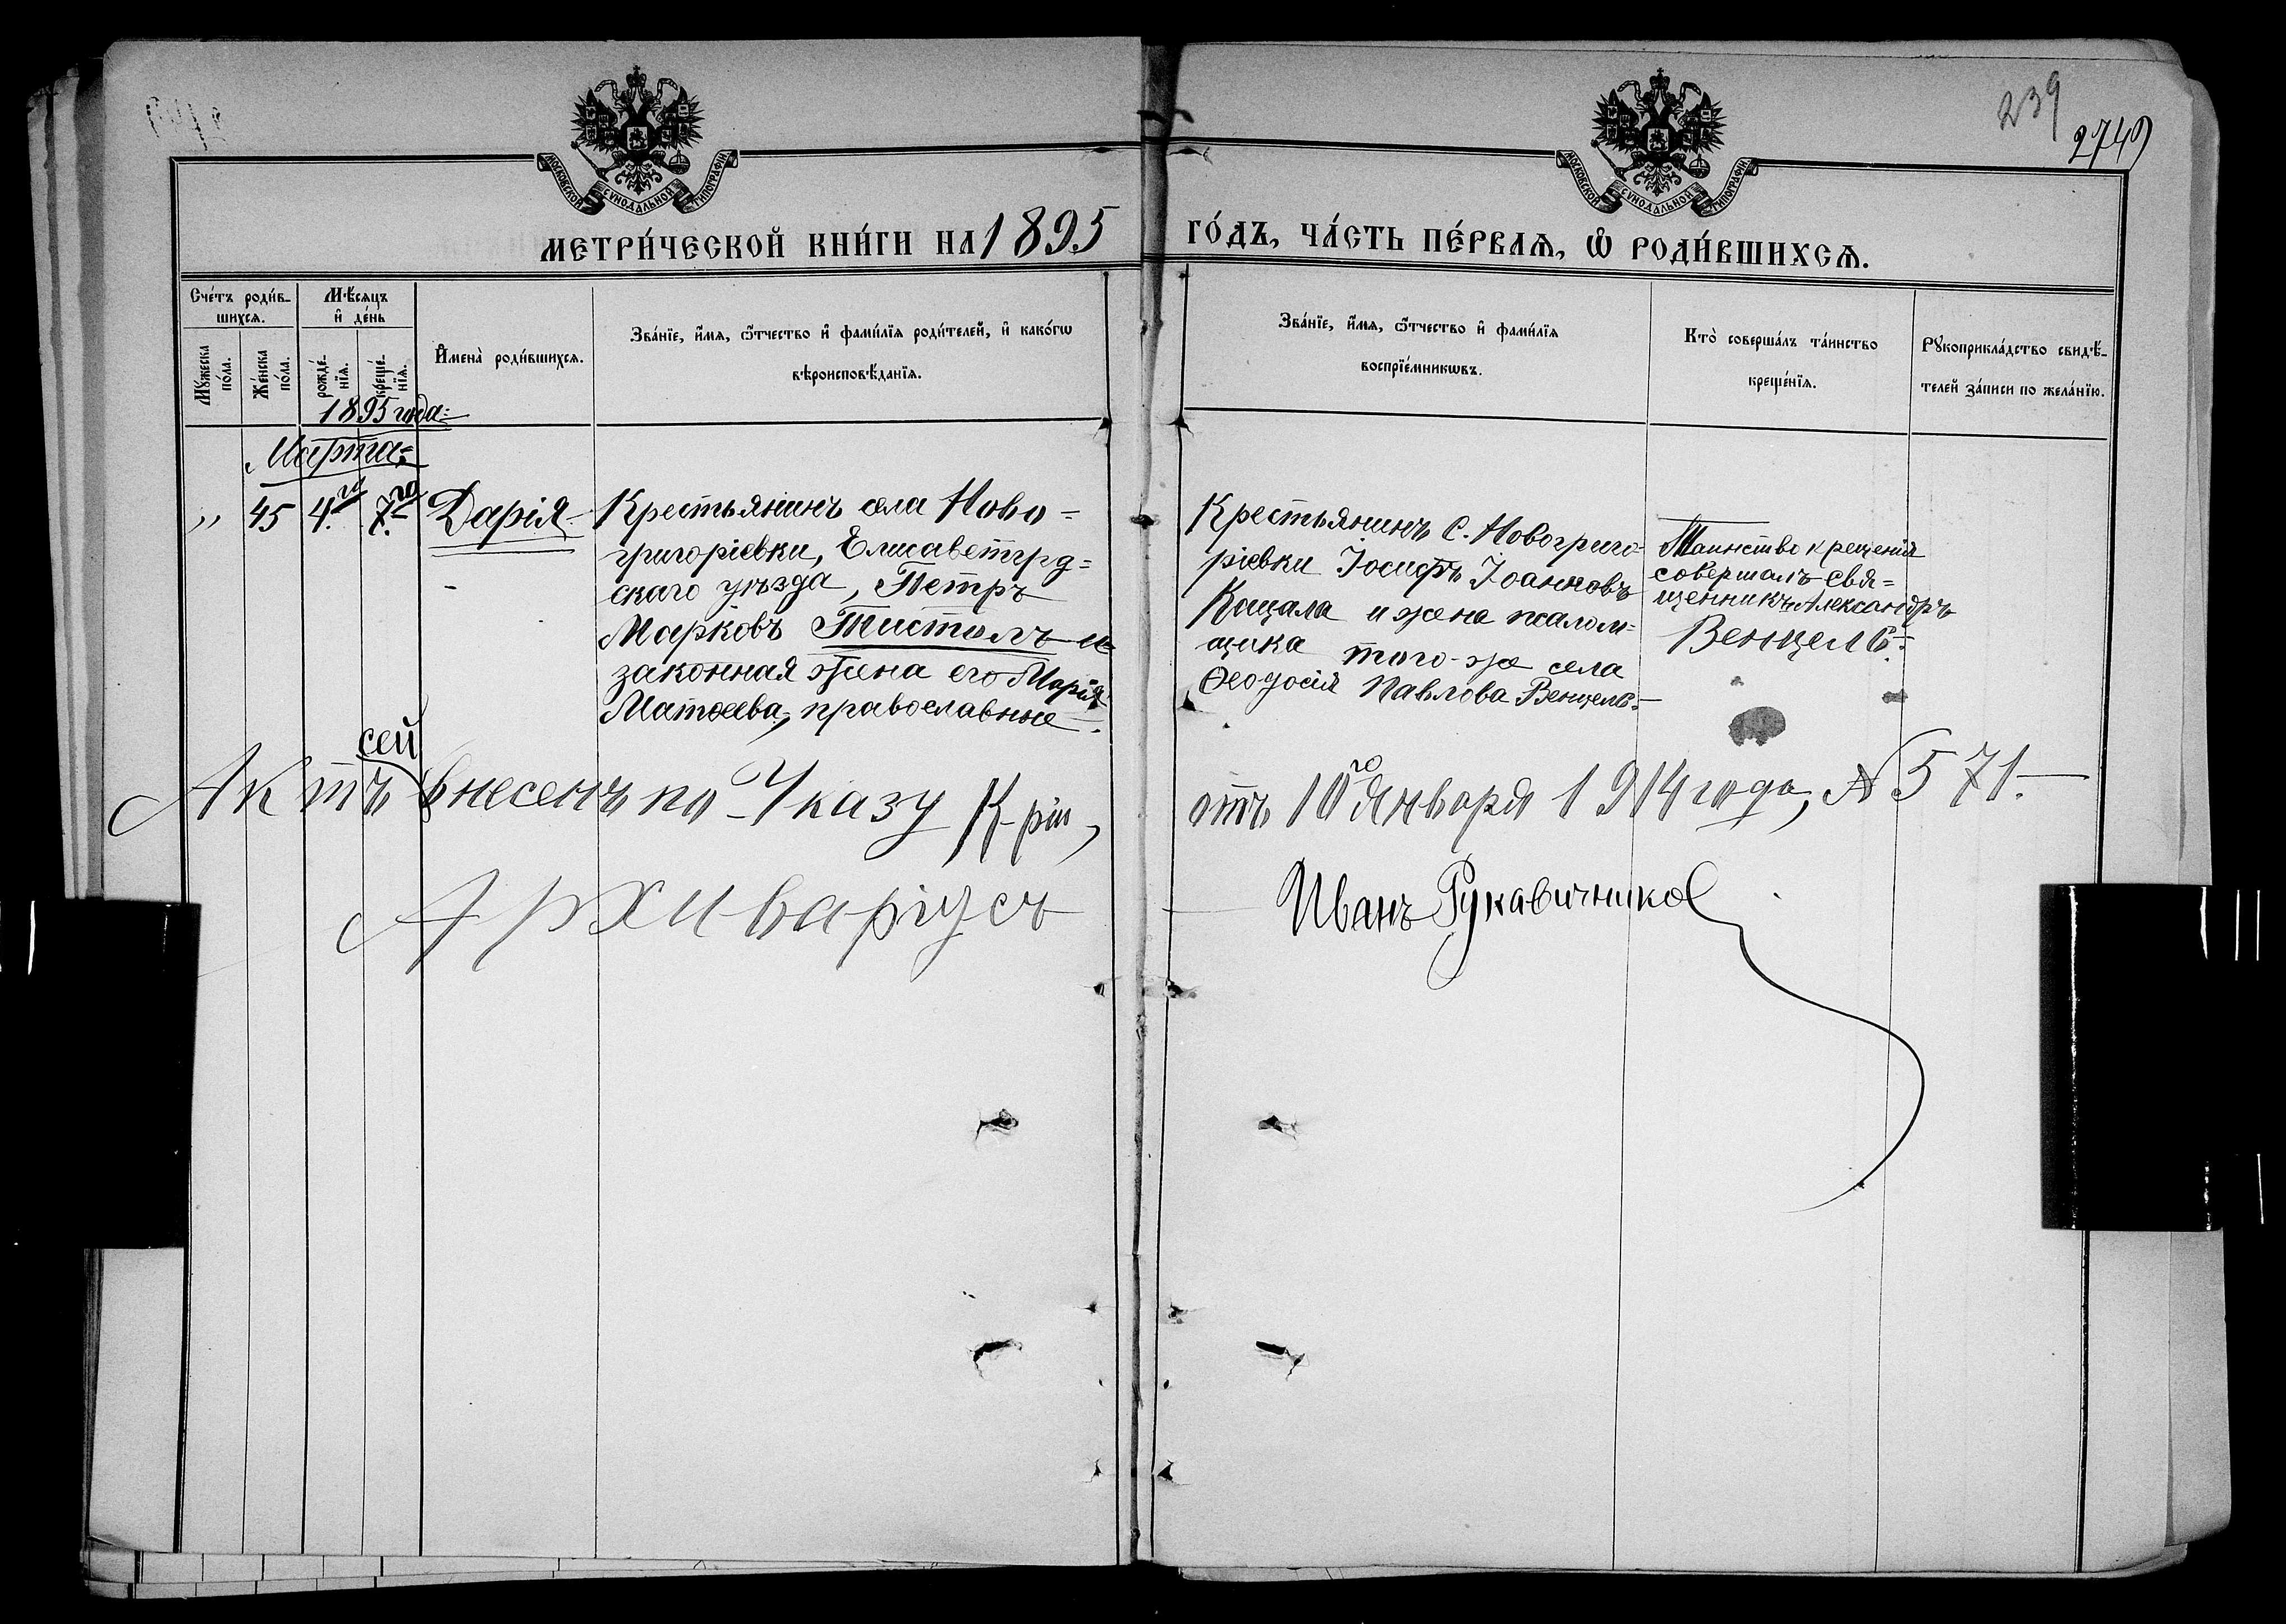 239
2749
МОСКОВСКОЙ СѴНОДАЛЬНОЙ ТИПОГРАФІИ
МОСКОВСКОЙ СѴНОДАЛЬНОЙ ТИПОГРАФІИ
МЕТРИ́ЧЕСКОЙ КНИ́ГИ НА 1895 ГО́ДЪ, ЧА́СТЬ ПЕ́РВАѦ, Ѽ РОДИ́ВШИХСѦ.
Сче́тъ роди́в-
шихсѧ.
Мꙋ́жеска
по́ла.
Же́нска
по́ла.
Мѣ́сѧцъ
и҆ де́нь
рожде́-
нїѧ.
креще́-
нїѧ.
И҆мена̀ роди́вшихсѧ.
Зва́нїе, и҆́мѧ, ѻ҆́тчество и҆ фами́лїѧ роди́телей, и҆ како́гѡ
вѣроисповѣ́данїѧ.
Зва́нїе, и҆́мѧ, ѻ҆́тчество и҆ фами́лїѧ
воспрїе́мникѡвъ.
Кто̀ соверша́лъ та́инство
креще́нїѧ.
Рꙋкоприкла́дство свидѣ́-
телей за́писи по жела́нїю.
1895 года:
Марта:
„ 45 4го 7го Дарія
Крестьянинъ села Ново-
григоріевки, Елисаветгрд-
скаго уѣзда, Петръ
Марковъ Тисталъ и
законная жена его Марія
Матѳеева, православные.
Крестьянинъ с. Новогриго-
ріевки Іосифъ Іоанновъ
Кацала и жена псалом-
щика того-же села
Ѳеодосія Павлова Венцель.
Таинство крещенія
совершалъ свя-
щенникъ Александръ
Венцель.
сей
Актъ внесенъ по Указу К-ріи, отъ 10го Января 1914 года, № 571.
Архиваріусъ Иванъ Рукавичников